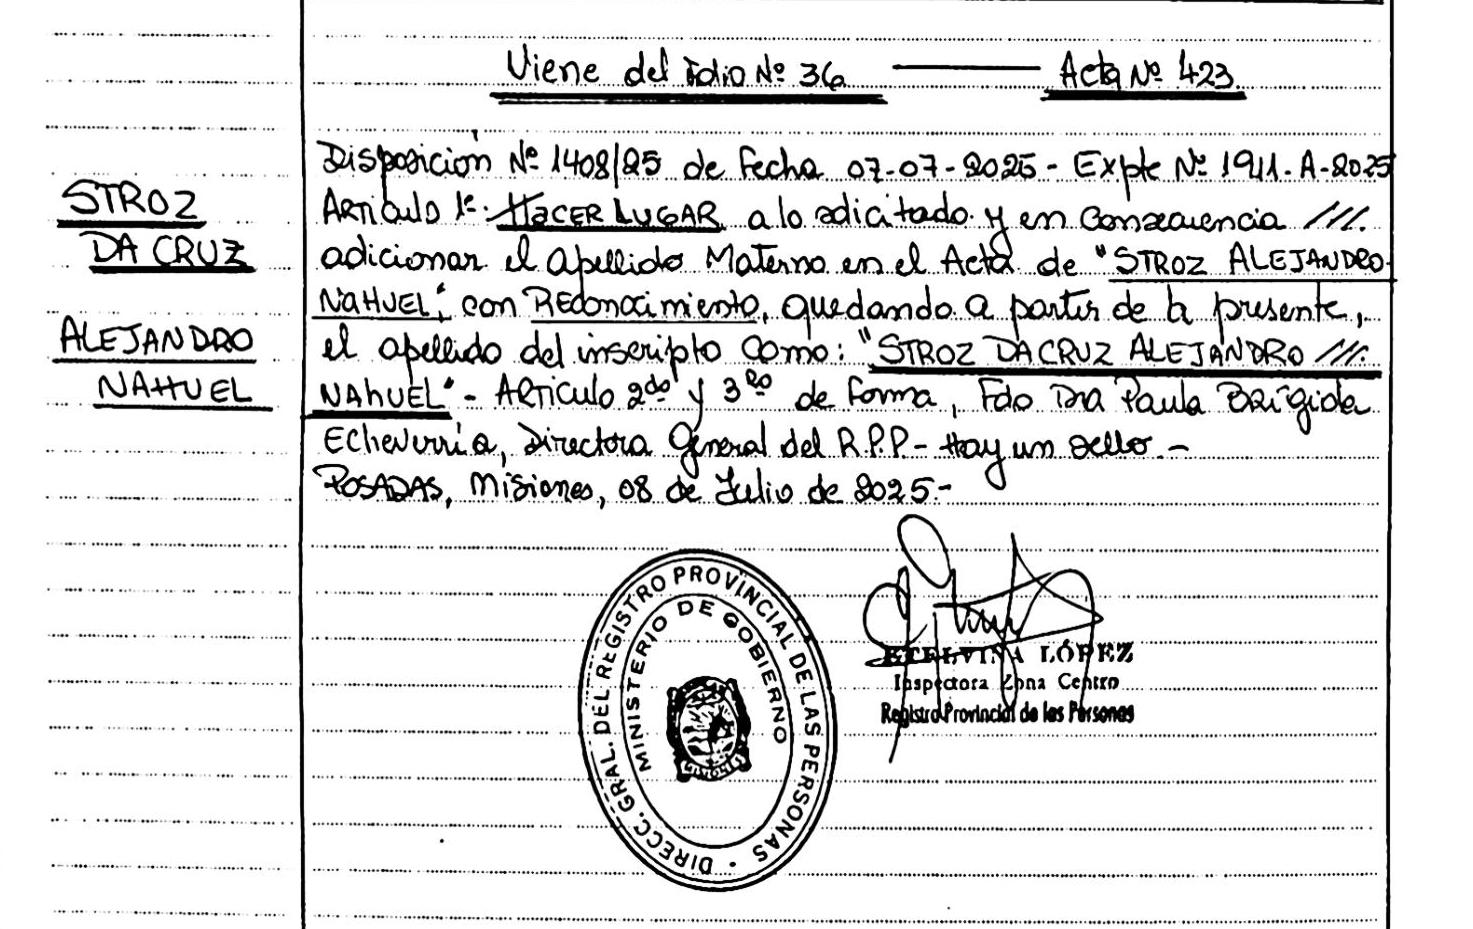 Viene del Folio Nº 36 ——— Acta Nº 423
STROZ
DA CRUZ
ALEJANDRO
NAHUEL
Disposición Nº 1408/25 de Fecha 07-07-2025- Expte Nº 1911-A-2025
Articulo 1º: HACER LUGAR a lo solicitado y en Consecuencia ///.
adicionar el apellido Materno en el Acta de "STROZ ALEJANDRO
NAHUEL", con Reconocimiento, quedando a partir de la presente,
el apellido del inscripto como: "STROZ DA CRUZ ALEJANDRO ///.
NAhUEL"- Articulo 2do y 3ro de forma, Fdo Dra Paula Brigida
Echeverria, Directora General del R.P.P- Hay un sello.-
POSADAS, Misiones, 08 de Julio de 2025-
DIRECC. GRAL. DEL REGISTRO PROVINCIAL DE LAS PERSONAS
MINISTERIO DE GOBIERNO
MISIONES
ETELVINA LÓPEZ
Inspectora Zona Centro
Registro Provincial de las Personas